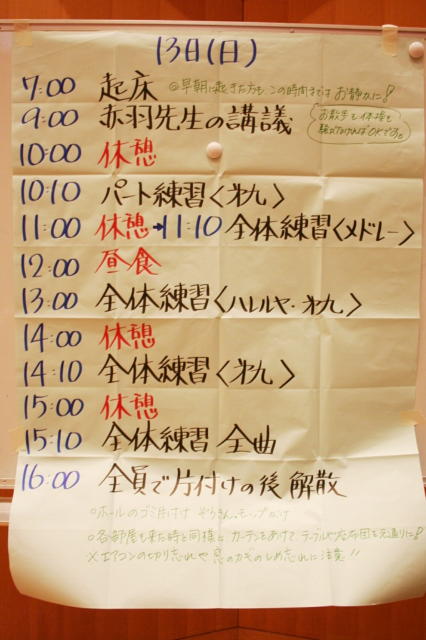 13日(日)
7:00 起床 ◎早朝に起きた方も この時間までは お静かに!
9:00 赤羽先生の講義
お散歩や体操を
騒がなければOKです。
10:00 休憩
10:10 パート練習〈第九〉
11:00 休憩→11:10 全体練習〈メドレー〉
12:00 昼食
13:00 全体練習〈ハレルヤ・第九〉
14:00 休憩
14:10 全体練習〈第九〉
15:00 休憩
15:10 全体練習 全曲
16:00 全員で片付けの後 解散
○ホールのゴミ片付け ぞうきん、モップがけ
○各部屋も来た時と同様に カーテンをあけて、テーブルや布団を元通りに!
×エアコンの切り忘れや 窓のカギのしめ忘れに注意!!